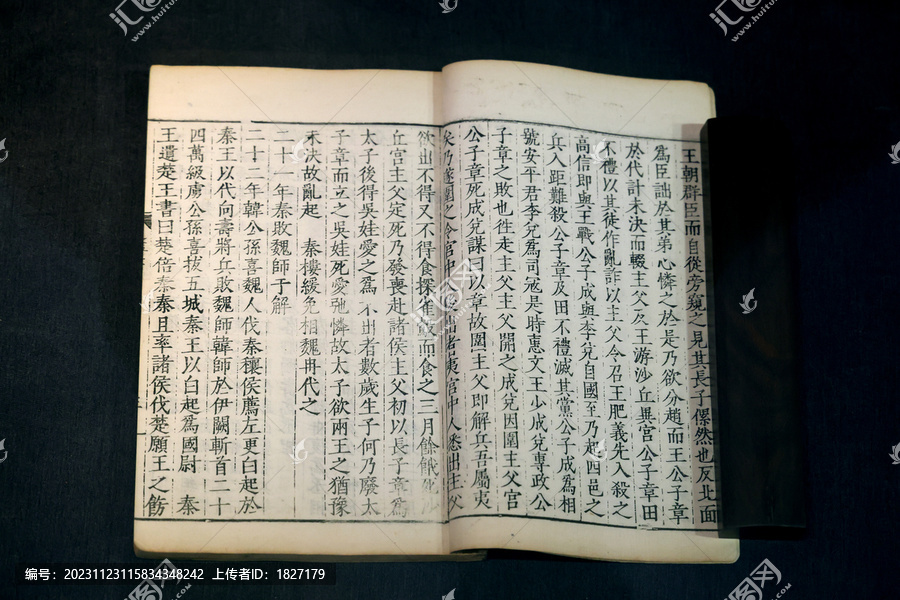 王朝群臣而自從旁窺之見其長子傫然也反北面
爲臣詘於其弟心憐之於是乃欲分趙而王公子章
於代計未決而輟主父及王游沙丘異宮公子章田
不禮以其徒作亂詐以主父令召王肥義先入殺之
高信即與王戰公子成與李兌自國至乃起四邑之
兵入距難殺公子章及田不禮滅其黨公子成爲相
號安平君李兌爲司寇是時惠文王少成兌專政公
子章之敗也徃走主父主父開之成兌因圍主父宮
公子章死成兌謀曰以章故圍主父即解兵吾屬夷
矣乃遂圍之令宮中後出者夷宮中人悉出主父
欲出不得又不得食探雀鷇而食之三月餘餓死沙
丘宮主父定死乃發喪赴諸侯主父初以長子章爲
太子後得吳娃愛之爲不出者數歲生子何乃廢太
子章而立之吳娃死愛弛憐故太子欲兩王之猶豫
未決故亂起 秦樓緩免相魏冉代之
二十一年秦敗魏師于解
二十二年韓公孫喜魏人伐秦穰侯薦左更白起於
秦王以代向壽將兵敗魏師韓師於伊闕斬首二十
四萬級虜公孫喜拔五城秦王以白起爲國尉 秦
王遺楚王書曰楚倍秦秦且率諸侯伐楚願王之飭
汇图网
编号：20231123115834348242 上传者ID：1827179